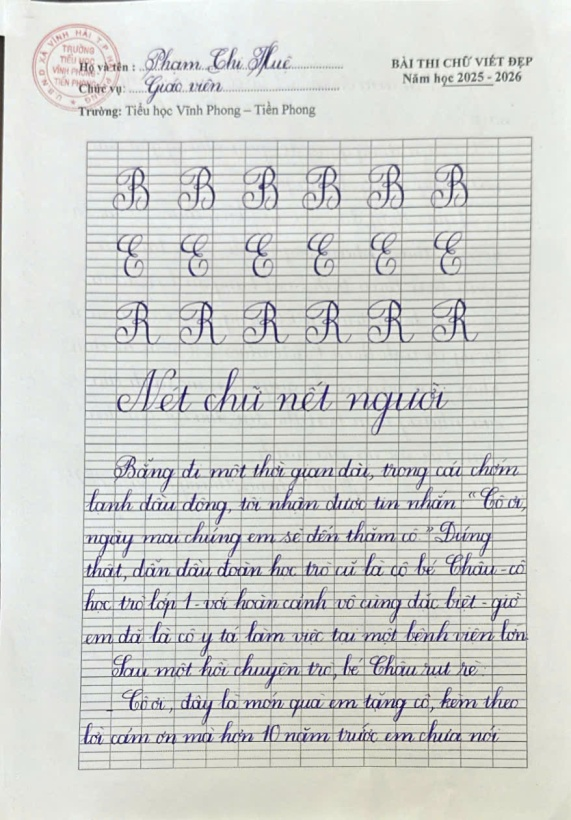 U.B.N.D XÃ VĨNH HẢI T.P
TRƯỜNG
TIỂU HỌC
VĨNH PHONG -
TIỀN PHONG
Họ và tên : Phạm Thị Huê
BÀI THI CHỮ VIẾT ĐẸP
Chức vụ: Giáo viên
Năm học 2025 - 2026
Trường: Tiểu học Vĩnh Phong – Tiền Phong
B B B B B B
E E E E E E
R R R R R R
Nét chữ nết người
Bẵng đi một thời gian dài, trong cái chớm
lạnh đầu đông, tôi nhận được tin nhắn “Cô ơi,
ngày mai chúng em sẽ đến thăm cô ” Đúng
thật, dẫn đầu đoàn học trò cũ là cô bé Châu - cô
học trò lớp 1 - với hoàn cảnh vô cùng đặc biệt - giờ
em đã là cô y tá làm việc tại một bệnh viện lớn
Sau một hồi chuyện trò, bé Châu rụt rè:
- Cô ơi, đây là món quà em tặng cô, kèm theo
lời cảm ơn mà hơn 10 năm trước em chưa nói